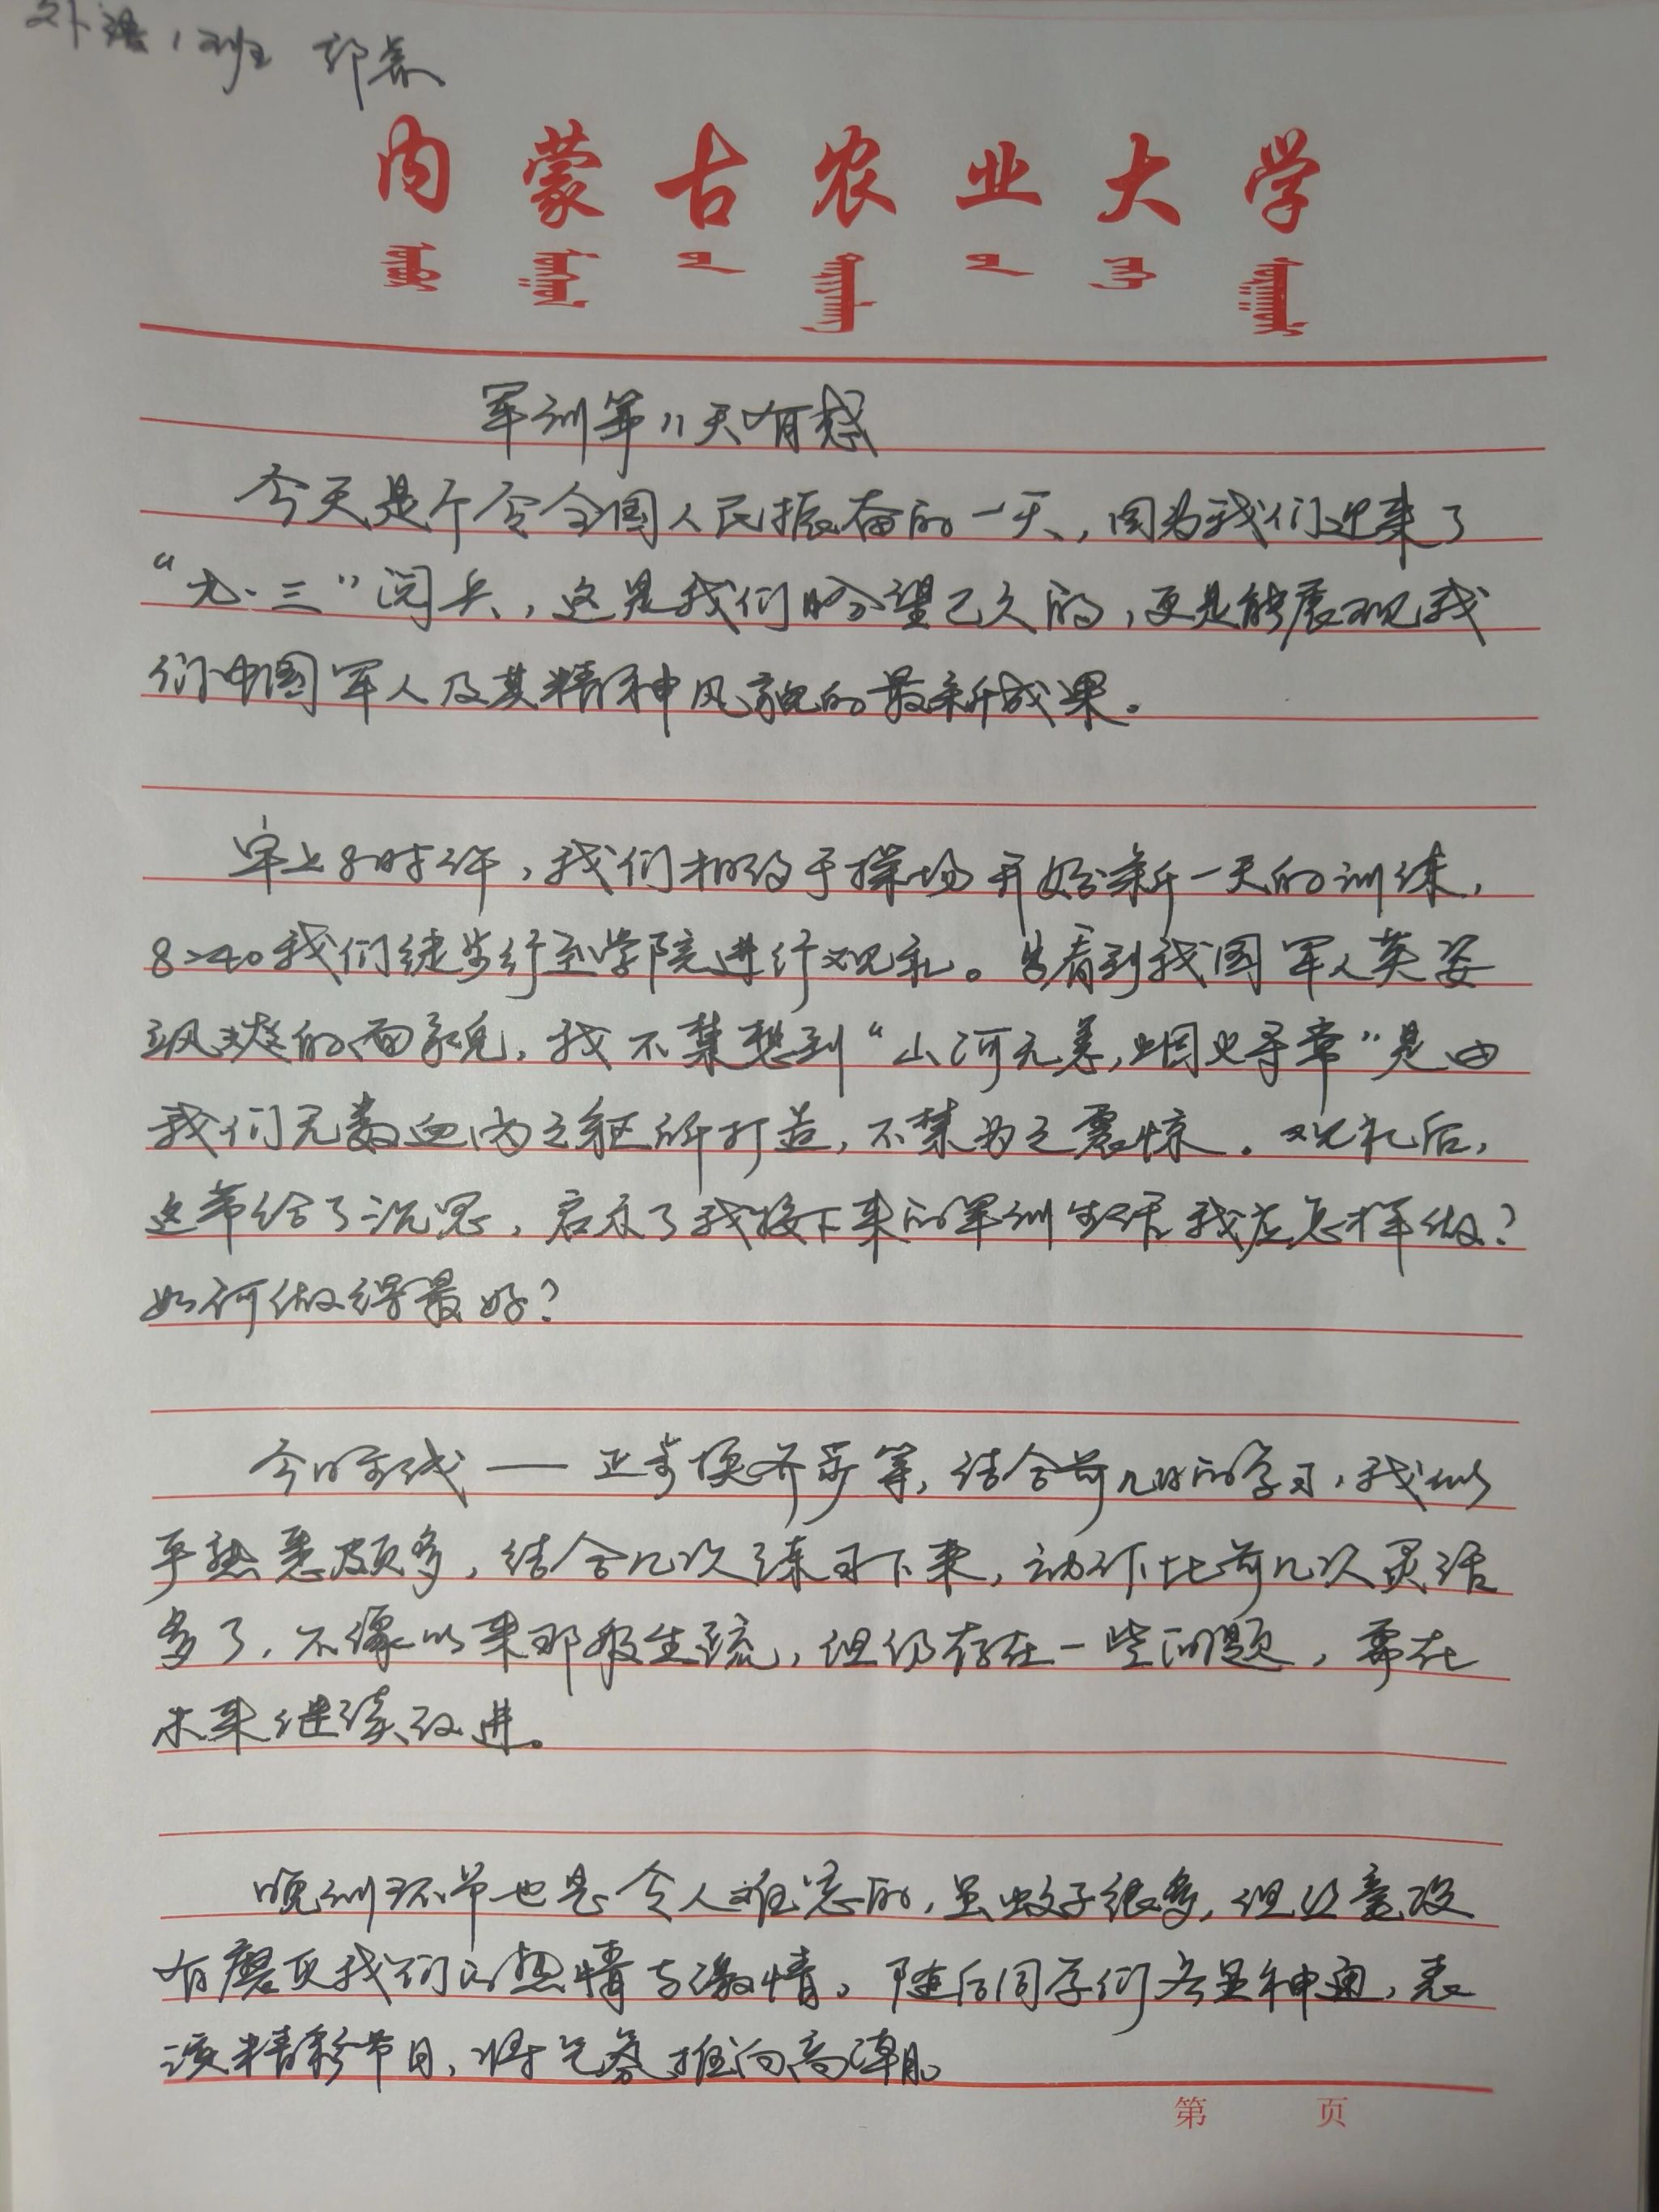 外语1班 郭
内蒙古农业大学
军训第11天有感
今天是个令全国人民振奋的一天，因为我们迎来了
“九·三”阅兵，这是我们盼望已久的，更是能展现我
们中国军人及其精神风貌的最新成果。
早上8时许，我们相约于操场开始新一天的训练，
8:40我们徒步行至学院进行观礼。当看到我国军人英姿
飒爽的面貌，我不禁想到“山河无恙，烟火寻常”是由
我们无数血肉之躯所打造，不禁为之震惊。观礼后，
这带给了沉思，启示了我接下来的军训生活我应怎样做？
如何做得最好？
今日训练——正步换齐步等，结合前几日的学习，我似
乎熟悉颇多，结合几次练习下来，动作比前几次灵活
多了，不像以来那般生疏，但仍存在一些问题，需在
未来继续改进。
晚训环节也是令人难忘的，虽蚊子很多，但丝毫没
有磨灭我们的热情与激情。随后同学们各显神通，表
演精彩节目，将气氛推向高潮。
第 页